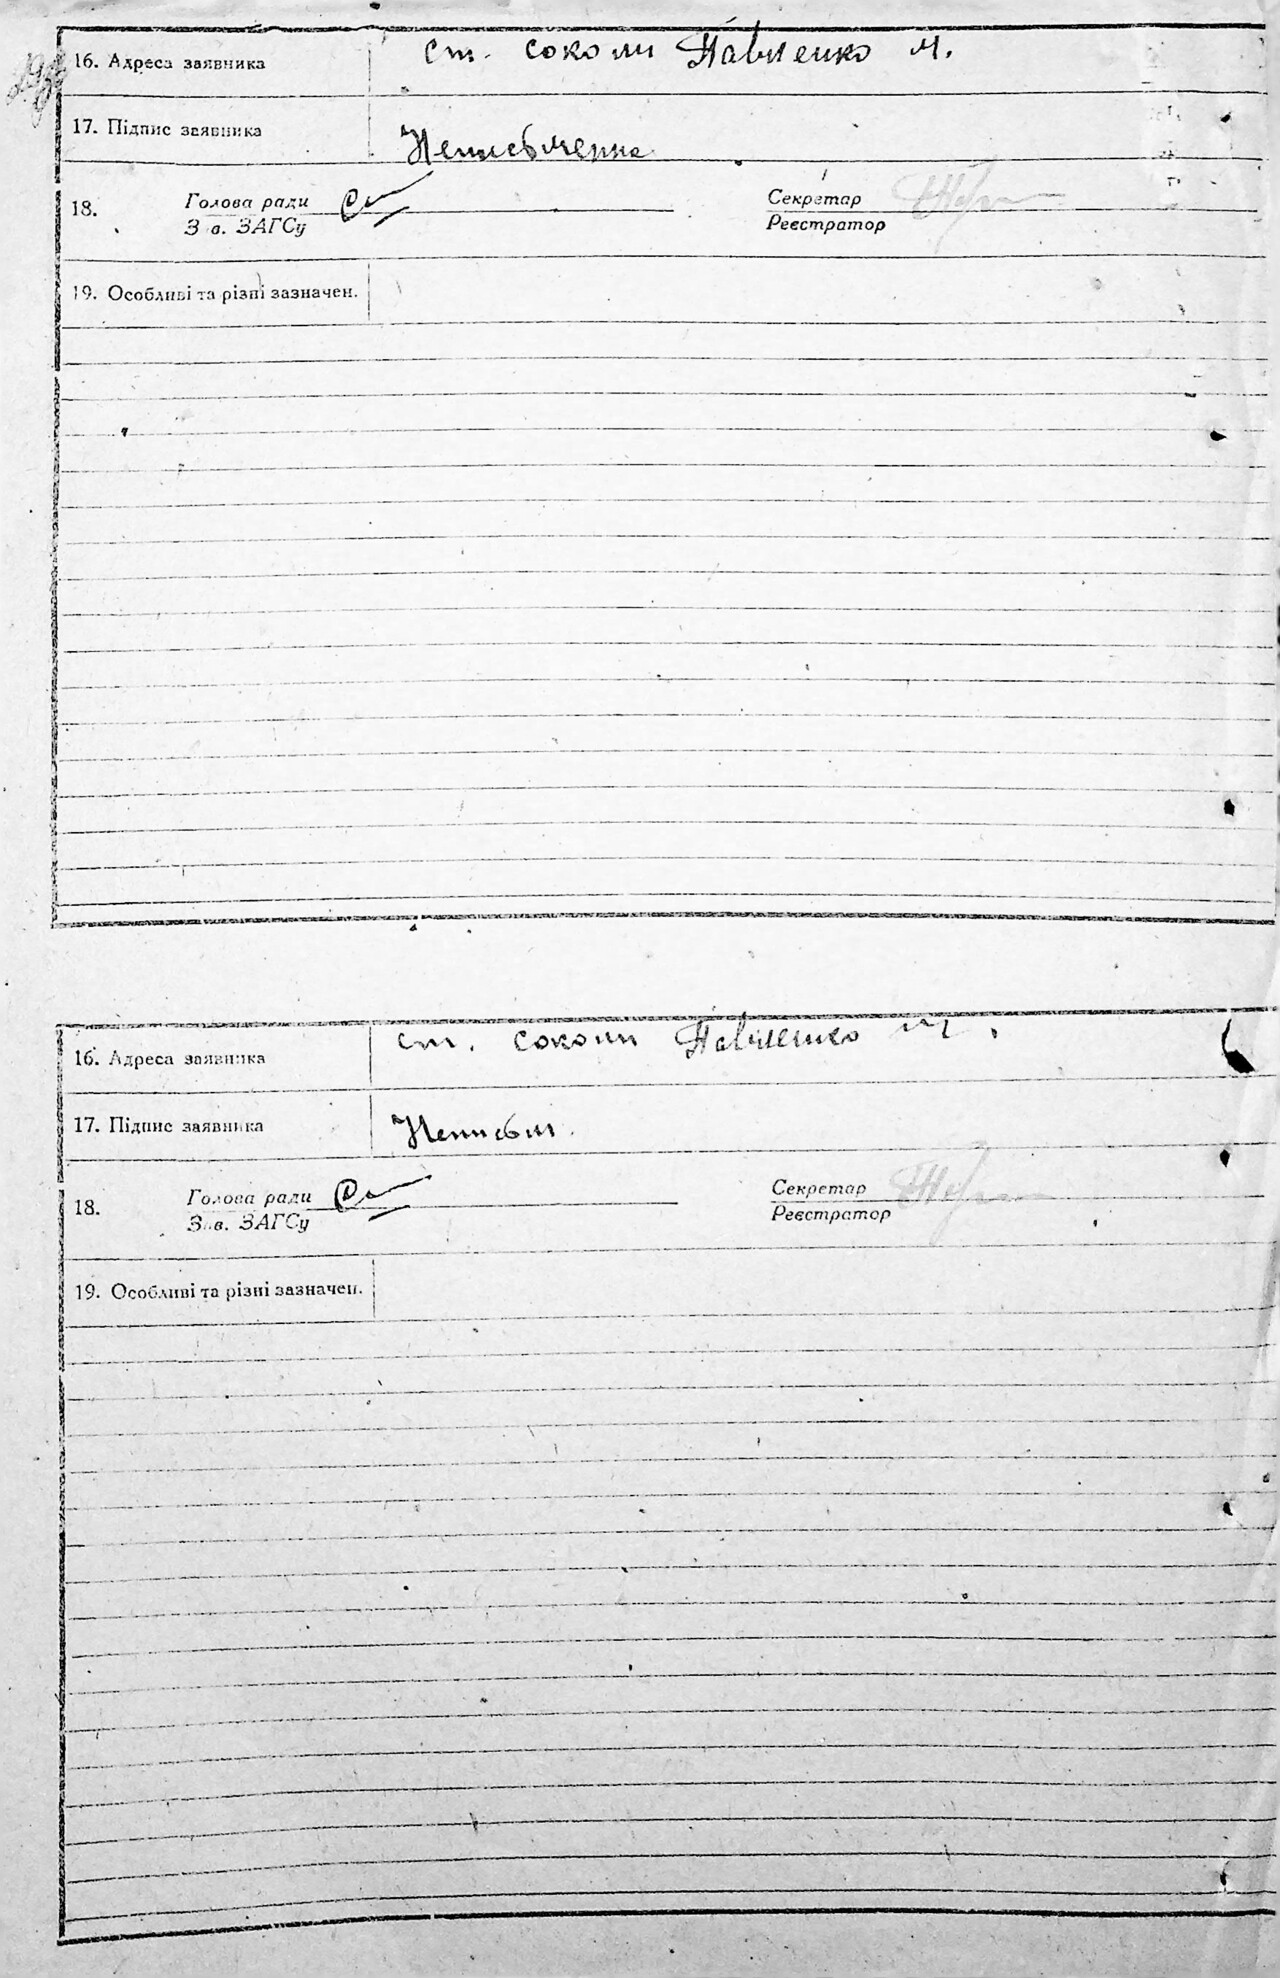 16. Адреса заявника ст. соколи Павленко М.
17. Підпис заявника Неписьменна
18. Голова ради Секретар
Зав. ЗАГСу Реєстратор
19. Особливі та різні зазначен.
16. Адреса заявника ст. соколи Павленко М.
17. Підпис заявника Неписьм.
18. Голова ради Секретар
Зав. ЗАГСу Реєстратор
19. Особливі та різні зазначен.